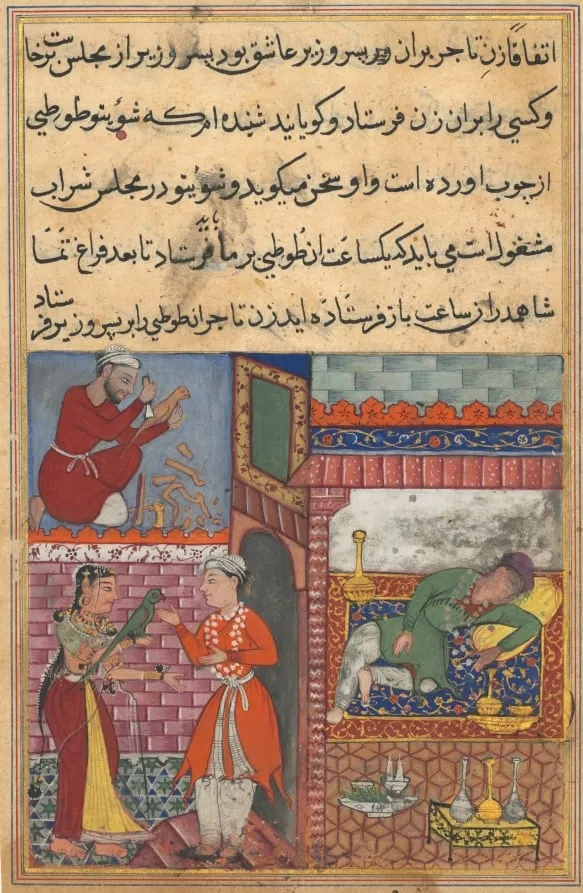 اتفاقًا زن تاجر بران پسر وزیر عاشق بود پسر وزیر از مجلس برخاست
وکسی را بران زن فرستاد و کویانید شنیده ام که شوٸیتو طوطیی
از چوب اورده است و او سخن میکوید و شوٸیتو در مجلس شراب
مشغول است می باید که یکساعت ان طوطی بر ما فرستاد تا بعد فراغ تمّا
شاهد از ساعت باز فرستاده اید زن تاجر ان طوطی را بر پسر وزیر فرستاد